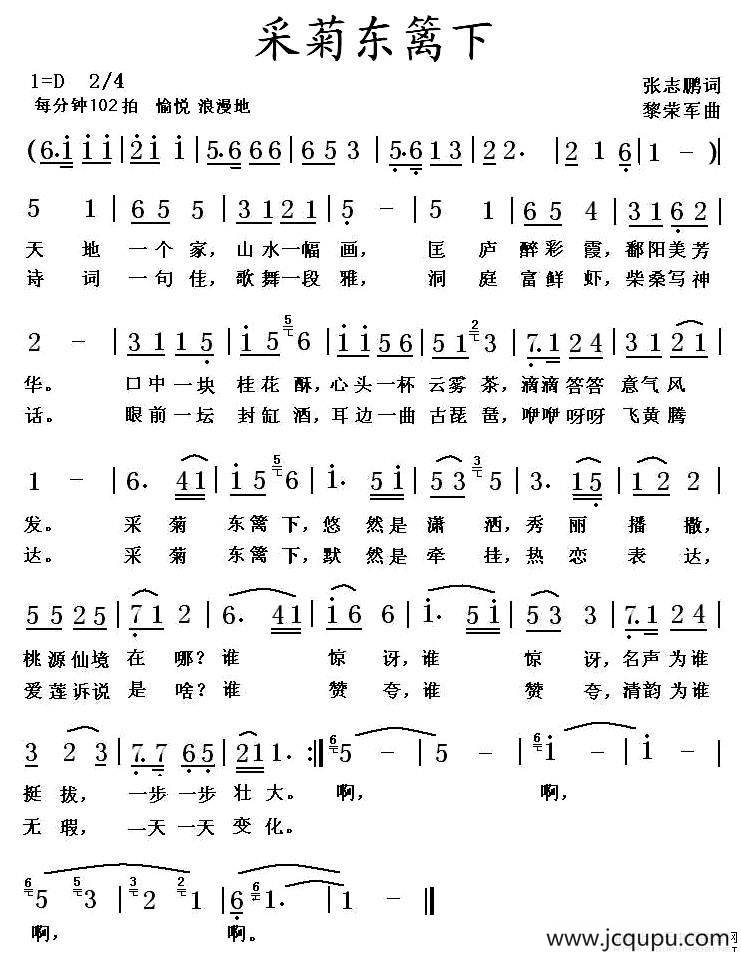 采菊东篱下
1=D 2/4
张志鹏词
每分钟102拍 愉悦 浪漫地
黎荣军曲
(6.i i i i | 2 i i | 5.6 6 6 6 | 6 5 3 | 5.6 1 3 | 2 2. | 2 1 6 | 1 - )|
5 1 | 6 5 5 | 3 1 2 1 | 5 - | 5 1 | 6 5 4 | 3 1 6 2 |
天 地 一个 家, 山水一幅 画, 匡 庐 醉彩 霞, 鄱阳美芳
诗 词 一句 佳, 歌舞一段 雅, 洞 庭 富鲜 虾, 柴桑写神
2 - | 3 1 1 5 | i 5 5 6 | i i 5 6 | 5 1 2 3 | 7.1 2 4 | 3 2 1 |
华。 口中一块 桂花 酥, 心头一杯 云雾 茶, 滴滴答答 意气风
话。 眼前一坛 封缸 酒, 耳边一曲 古琵 琶, 咿咿呀呀 飞黄腾
1 - | 6. 4 1 | i 5 5 6 | i. 5 i | 6 5 3 5 | 3. 1 5 | 1 2 2 |
发。 采 菊 东篱 下, 悠 然是 潇 洒, 秀 丽 播 撒,
达。 采 菊 东篱 下, 默 然是 牵 挂, 热 恋 表 达,
5 5 2 5 | 7 1 2 | 6. 4 1 | i 6 6 | i. 5 i | 5 3 3 | 7.1 2 4 |
桃源仙境 在 哪? 谁 惊 讶, 谁 惊 讶, 名声为谁
爱莲诉说 是 啥? 谁 赞 夸, 谁 赞 夸, 清韵为谁
3 2 3 | 7.7 6 5 | 2 1 1. :‖ 6 5 - | - - | 6 i - | i - |
挺 拔, 一步一步 壮大。 啊, 啊,
无 瑕, 一天一天 变化。
6 5 5 3 | 3 2 2 1 | 6 6 1 | 1 - ‖
啊, 啊。
www.jcqupu.com